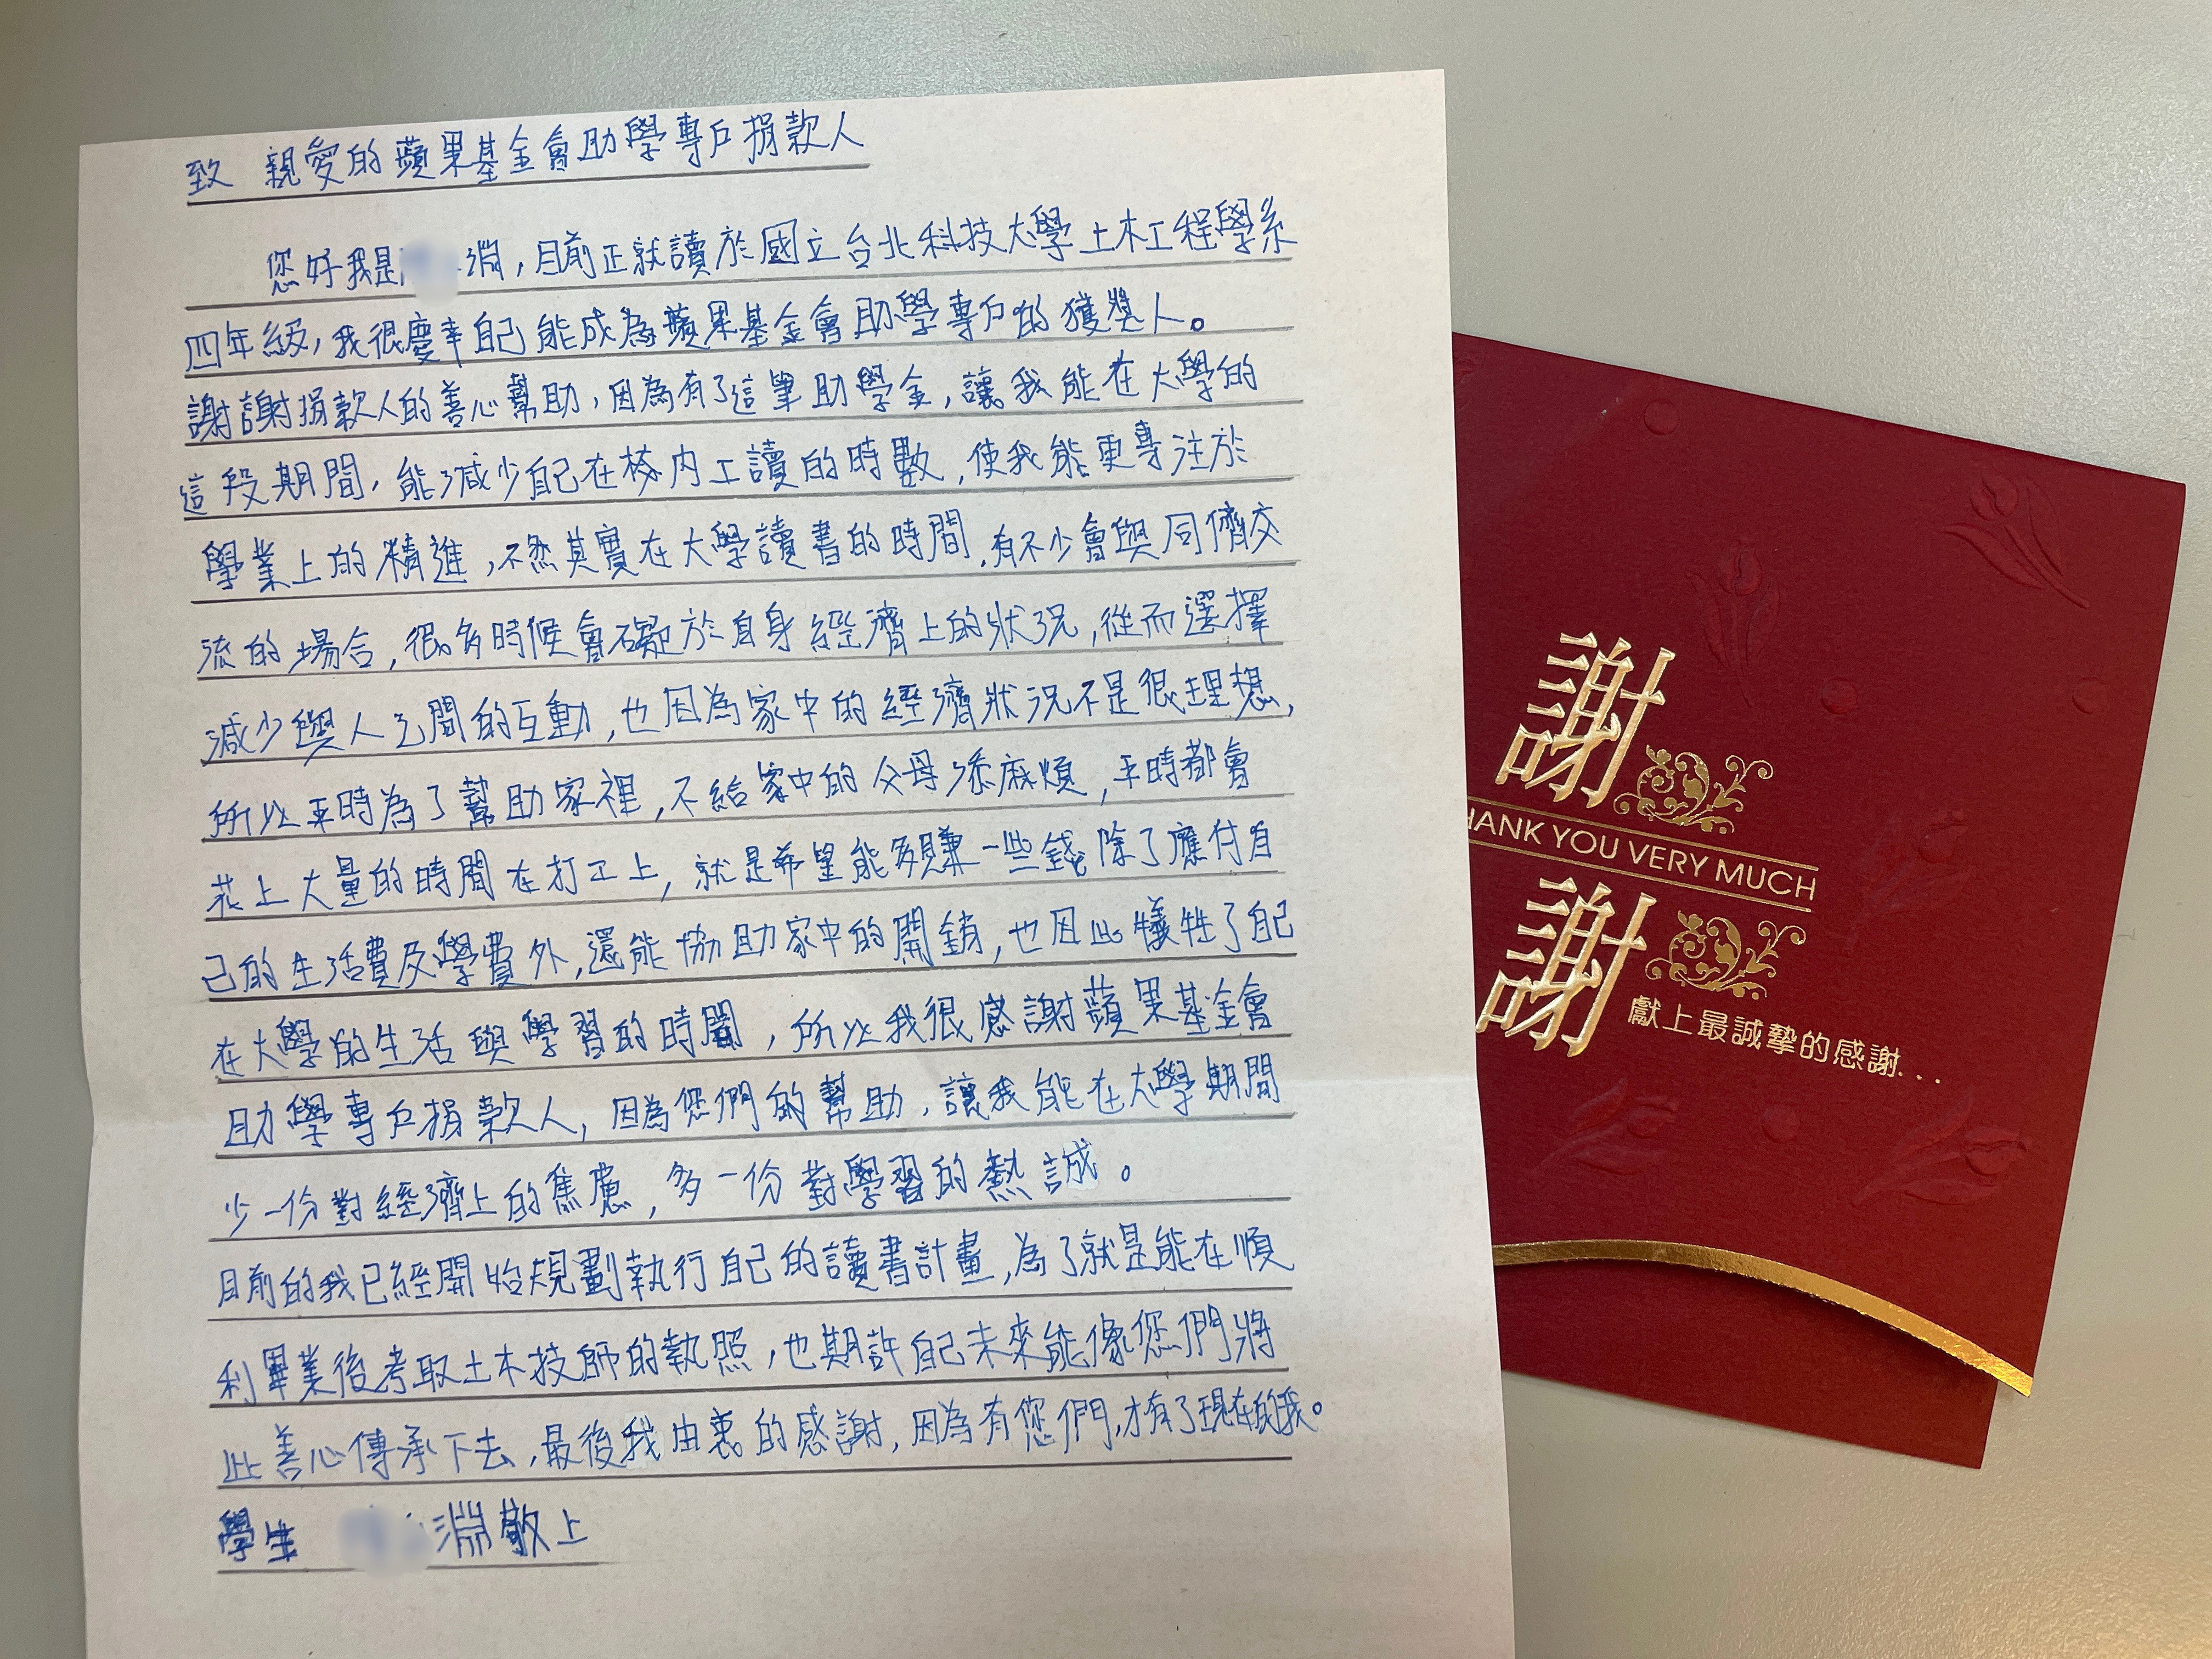 致 親愛的蘋果基金會助學專戶捐款人
您好我是淵，目前正就讀於國立台北科技大學土木工程學系
四年級，我很慶幸自己能成為蘋果基金會助學專戶的獲獎人。
謝謝捐款人的善心幫助，因為有了這筆助學金，讓我能在大學的
這段期間，能減少自己在校內工讀的時數，使我能更專注於
學業上的精進，不然其實在大學讀書的時間，有不少會與同儕交
流的場合，很多時候會礙於自身經濟上的狀況，從而選擇
減少與人之間的互動，也因為家中的經濟狀況不是很理想，
所以平時為了幫助家裡，不給家中的父母添麻煩，平時都會
花上大量的時間在打工上，就是希望能多賺一些錢除了應付自
己的生活費及學費外，還能協助家中的開銷，也因此犧牲了自己
在大學的生活與學習的時間，所以我很感謝蘋果基金會
助學專戶捐款人，因為您們的幫助，讓我能在大學期間
少一份對經濟上的焦慮，多一份對學習的熱誠。
目前的我已經開始規劃執行自己的讀書計畫，為了就是能在順
利畢業後考取土木技師的執照，也期許自己未來能像您們將
此善心傳承下去，最後我由衷的感謝，因為有您們，才有了現在的我。
學生 淵敬上
謝
HANK YOU VERY MUCH
謝
獻上最誠摯的感謝...